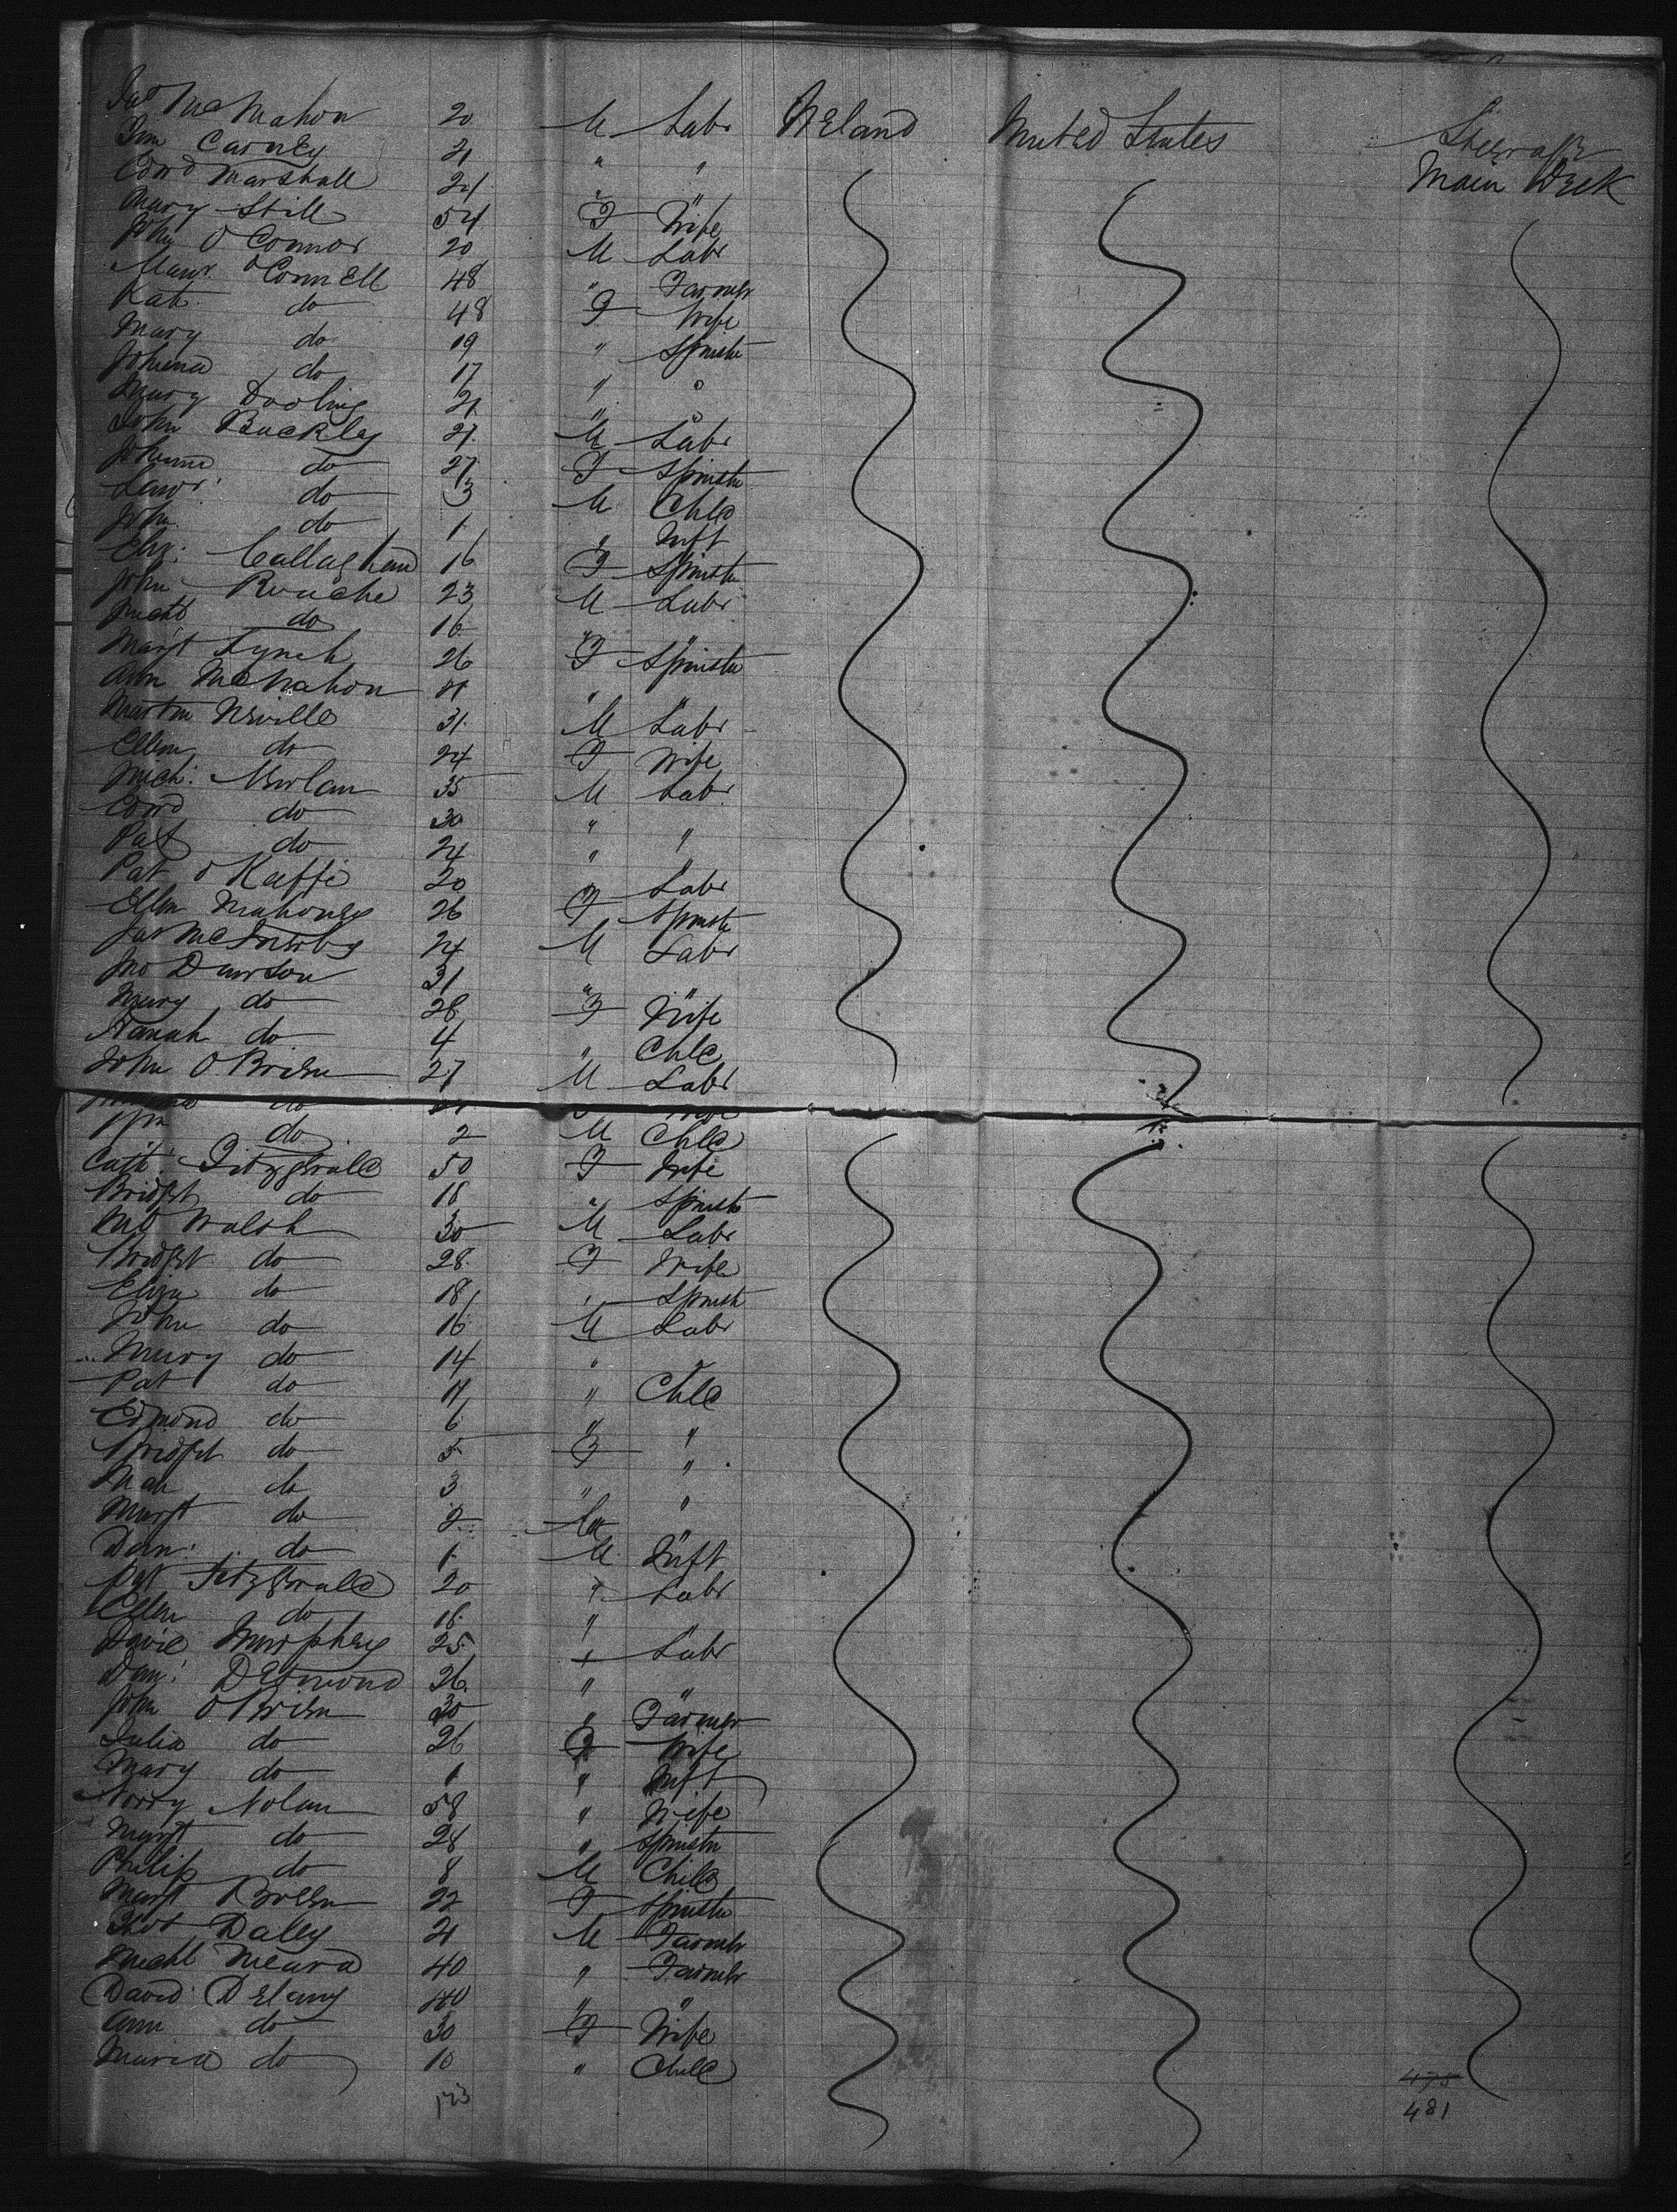 Jas McMahon 20 M Labr Ireland United States Steerage
Jim Carney 21 " " Main Deck
Edwd Marshall 24 " "
Mary Still 54 F Wife
John O Connor 20 M Labr
Maur. O Connell 48 " Farmer
Kat. do 48 F Wife
Mary do 19 " Spinstr
Johana do 17 " "
Mary Dooling 21 " "
John Buckley 27 M Labr
Johana do 27 F Spinstr
Lawr. do 3 M Chld
John do 1 " Inft
Eliz: Callaghan 16 F Spinstr
John Rouche 23 M Labr
Michl do 16 " "
Margt Lynch 26 F Spinstr
Ann McMahon " "
Martin Neville 31 M Labr
Ellen do 24 F Wife
Mich: Nowlan 35 M Labr
Edwd do 30 " "
Pat do 24 " "
Pat O Keeffe 20 " Labr
Ellen Mahoney 26 F Spinstr
Jas McInerby 24 M Labr
Jno Dawson 31 " "
Mary do 28 F Wife
Hanah do 4 " Chld
John O Brien 27 M Labr
do F Wife
Wm do 2 M Chld
Cath: Fitzgerald 50 F Wife
Bridget do 18 " Spinstr
Walsh 30 M Labr
Bridget do 28 F Wife
Eliza do 18 " Spinstr
John do 16 M Labr
Mary do 14 " "
Pat do 11 " Chld
Edmond do 6 " "
Bridget do 5 F "
do 3 " "
Margt do 2 "
Dan: do 1 M Inft
Pat Fitzgerald 20 " Labr
Ellen do 18 " "
David Murphey 25 + Labr
Dan: Desmond 26 " "
John O Brien 30 " Farmer
Julia do 26 F Wife
Mary do 1 " Inft
Norry Nolan 58 " Wife
Margt do 28 " Spinstr
Philip do 8 M Child
Margt Bolen 22 F Spinstr
Thos Daley 21 M Farmer
Michl Meara 40 " Farmer
David Delany 40 " "
Ann do 30 F Wife
Maria do 10 " Child
123
475
481